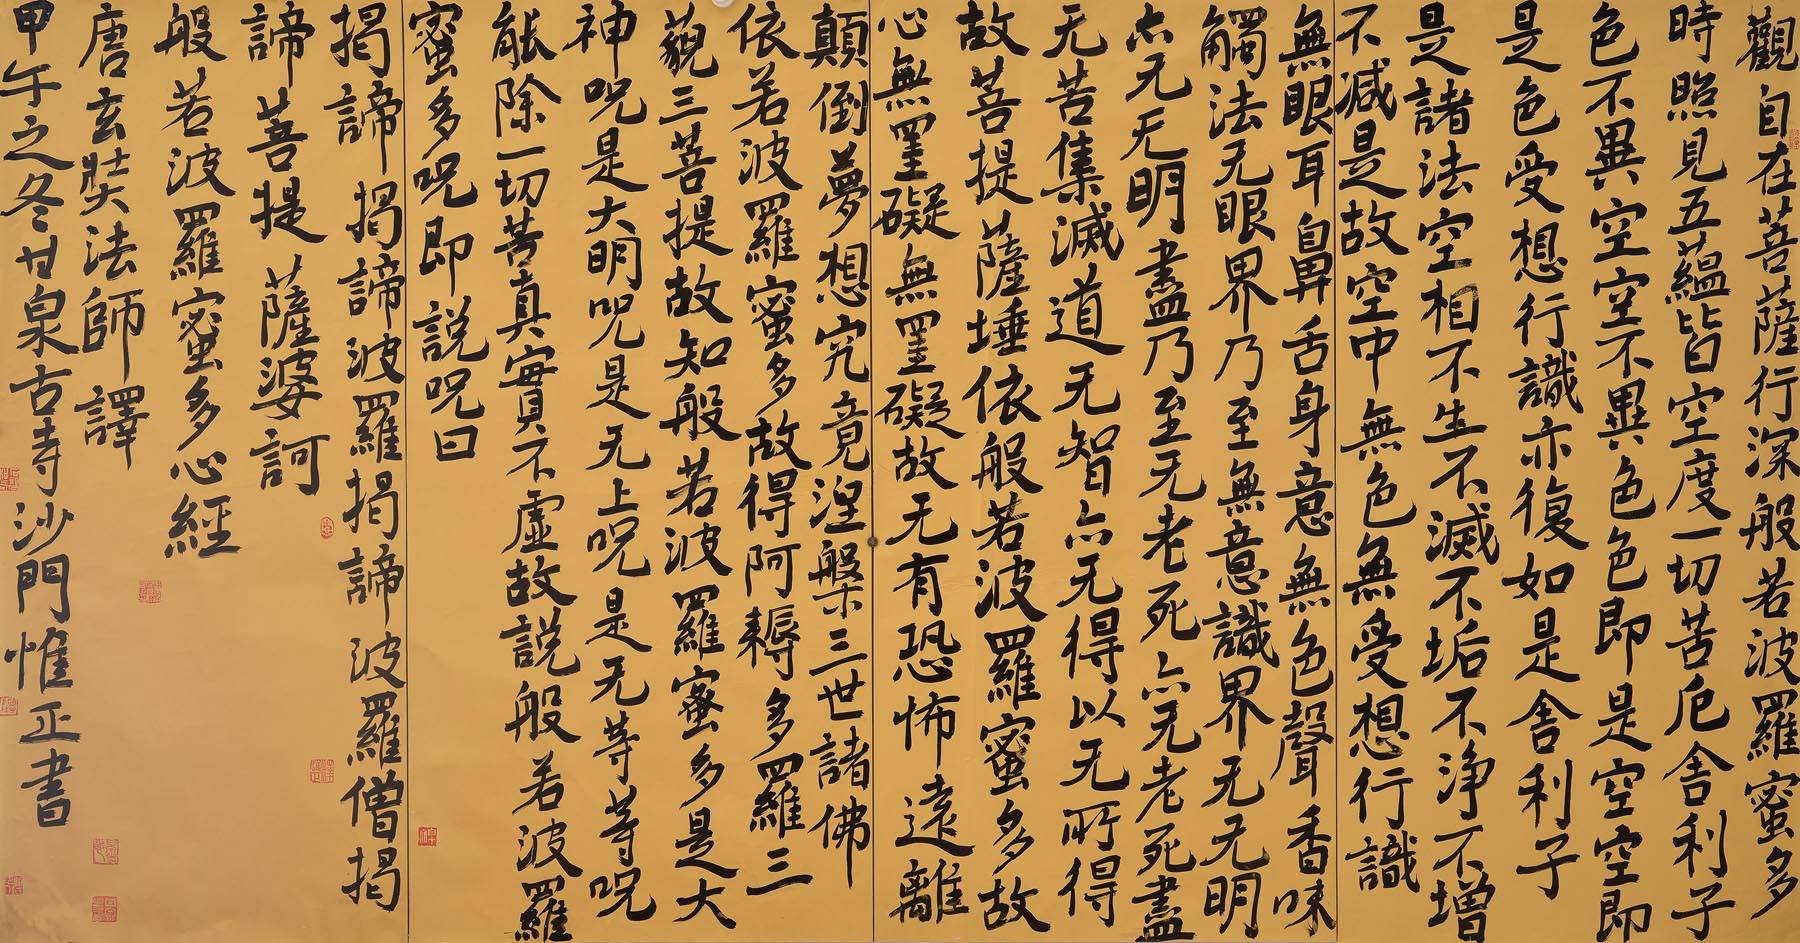 觀自在菩薩行深般若波羅蜜多
時照見五蘊皆空度一切苦厄舍利子
色不異空空不異色色即是空空即
是色受想行識亦復如是舍利子
是諸法空相不生不滅不垢不淨不增
不減是故空中無色無受想行識
無眼耳鼻舌身意無色聲香味
觸法无眼界乃至無意識界无无明
亦无无明盡乃至无老死亦无老死盡
无苦集滅道无智亦无得以无所得
故菩提薩埵依般若波羅蜜多故
心無罣礙無罣礙故无有恐怖遠離
顛倒夢想究竟涅槃三世諸佛
依若波羅蜜多故得阿耨多羅三
藐三菩提故知般若波羅蜜多是大
神呪是大明呪是无上呪是无等等呪
能除一切苦真實不虛故説般若波羅
蜜多呪即説呪曰
揭諦揭諦波羅揭諦波羅僧揭
諦菩提薩婆訶
般若波羅蜜多心經
唐玄奘法師譯
甲午之冬甘泉古寺沙門惟正書